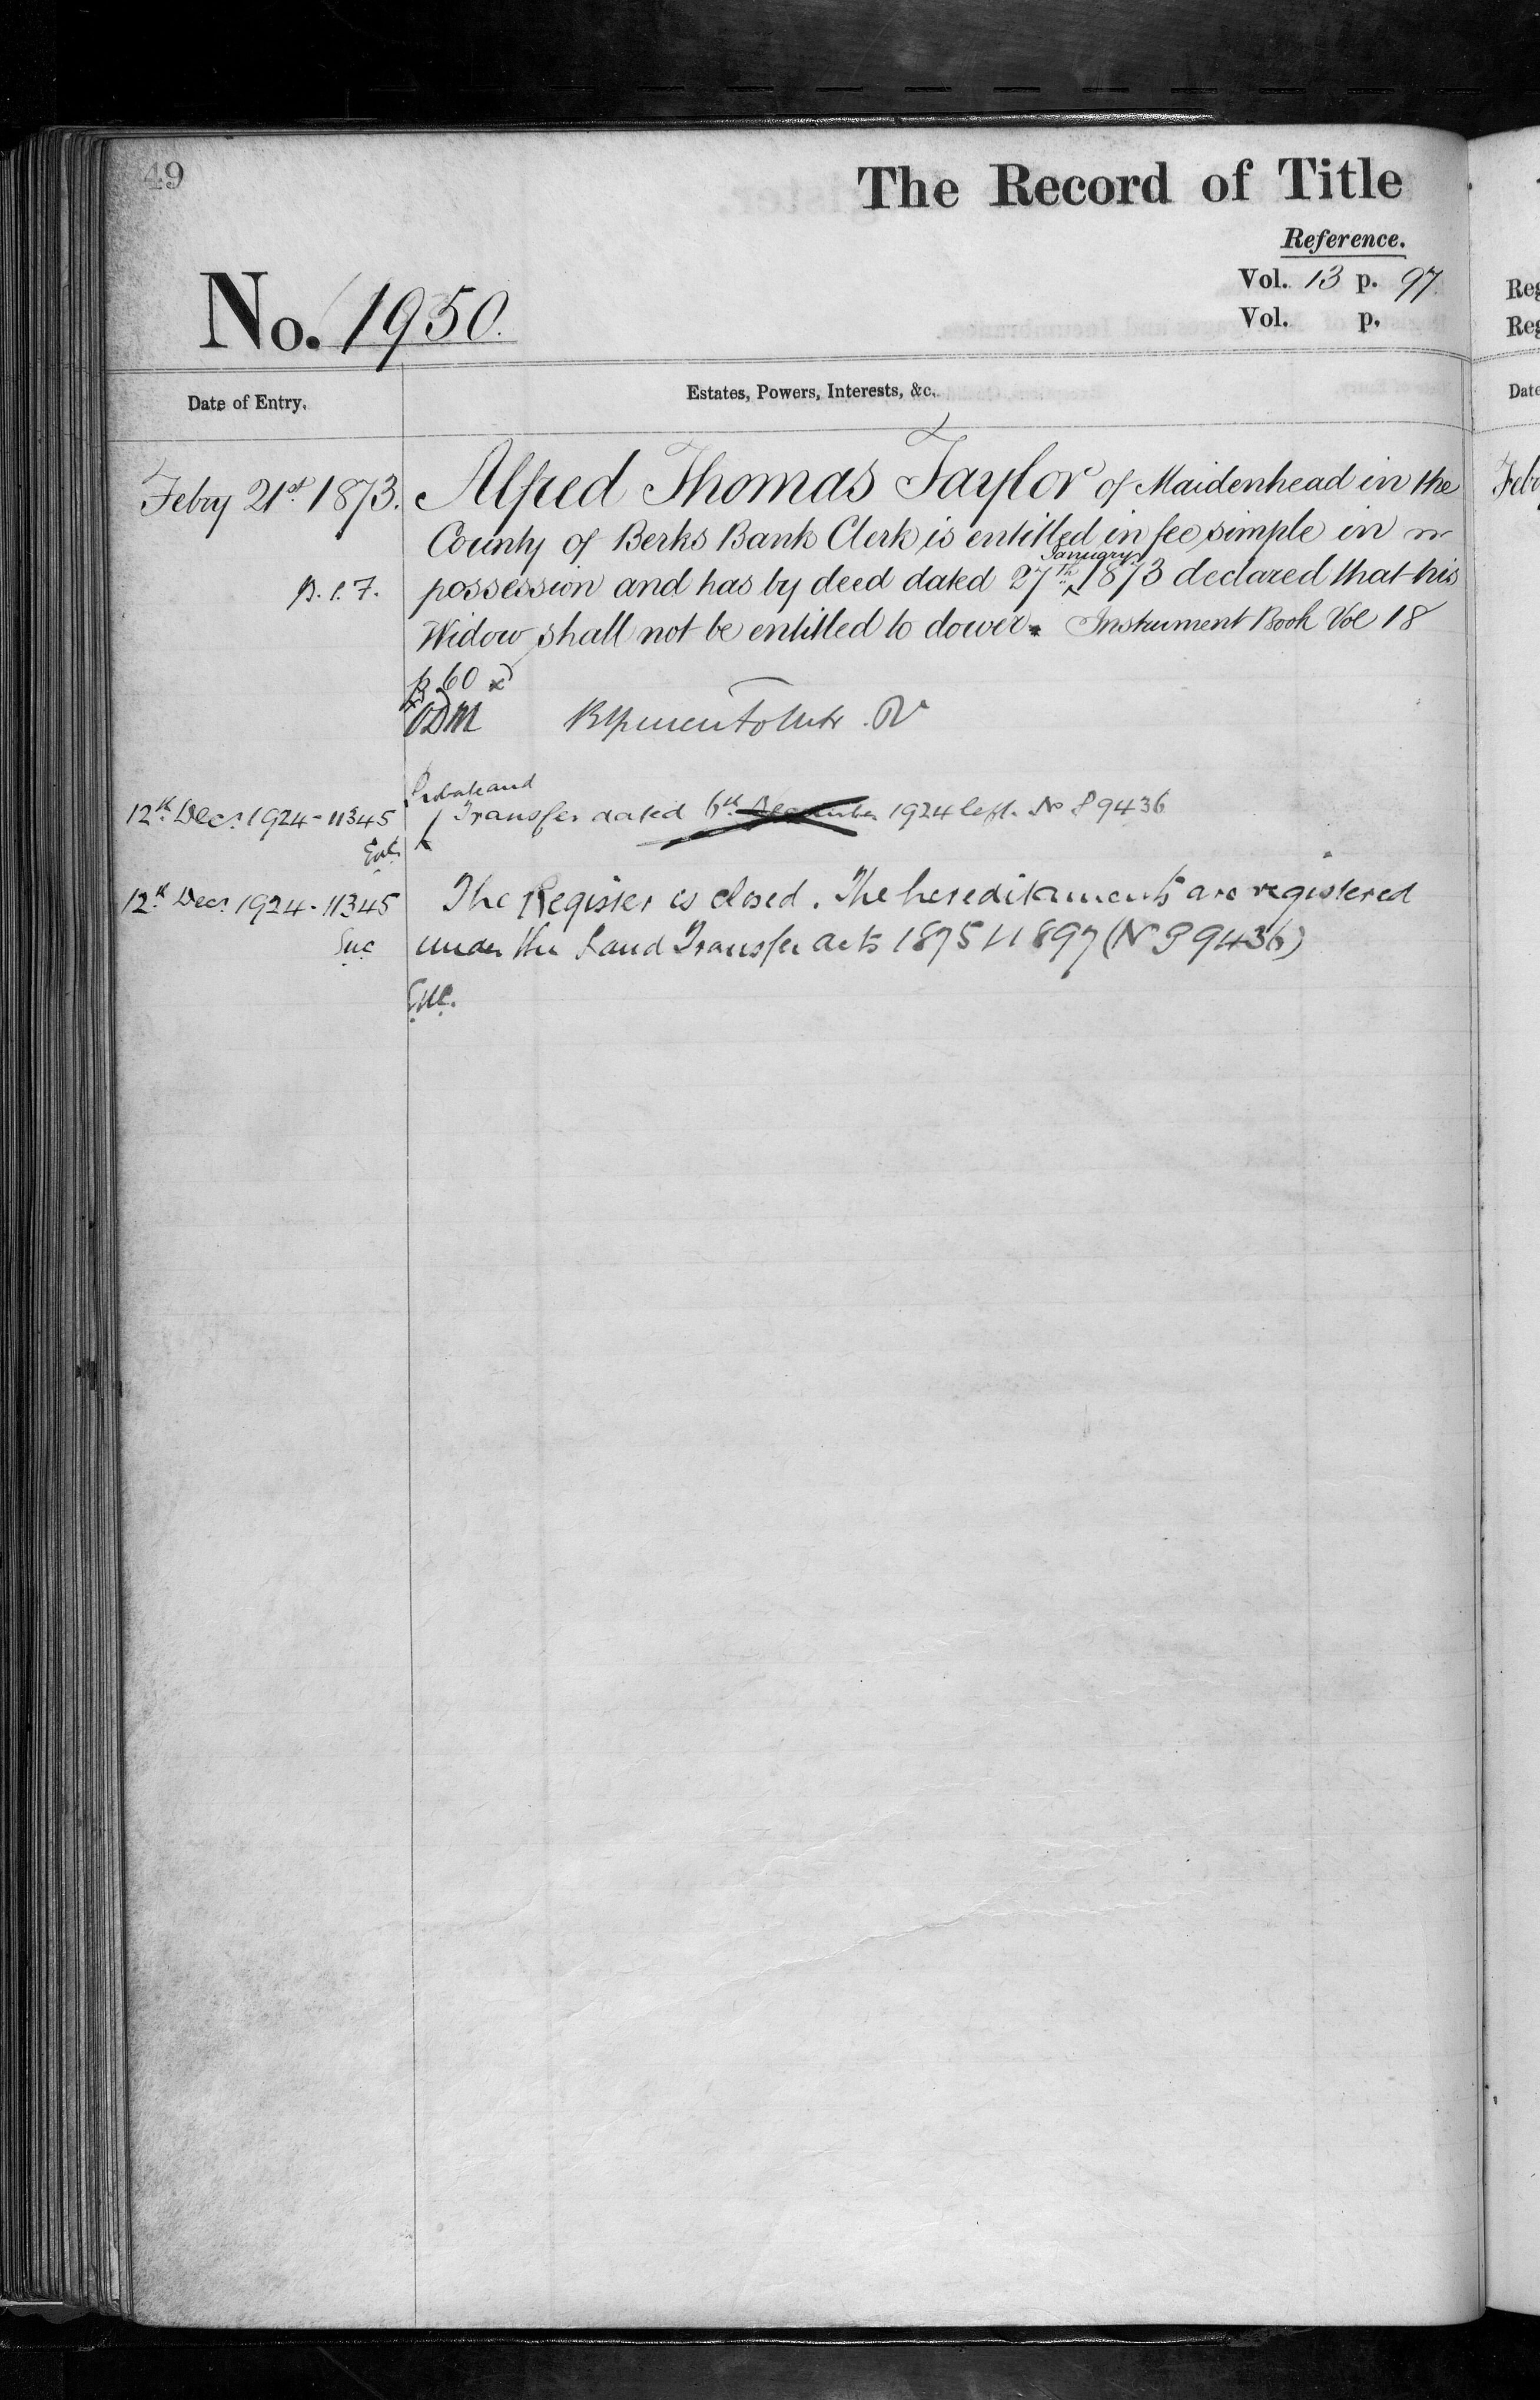 49
The Record of Title
Reference.
Vol. 13 p. 97
Vol. p.
No. 1950.
Date of Entry.
Estates, Powers, Interests, &c.
Feby 21st 1873. Alfred Thomas Taylor of Maidenhead in the
County of Berks Bank Clerk is entitled in fee simple in
possession and has by deed dated 27th January 1873 declared that his
Widow shall not be entitled to dower. Instrument Book Vol 18
p 60
12th Decr. 1924 - 11345 Probate and Transfer dated 6th December 1924 left. No P 9436
12th Decr. 1924 - 11345 The Register is closed. The hereditaments are registered
under the Land Transfer Acts 1875 & 1897 (No P 9436)
Reg
Reg
Date
Feby